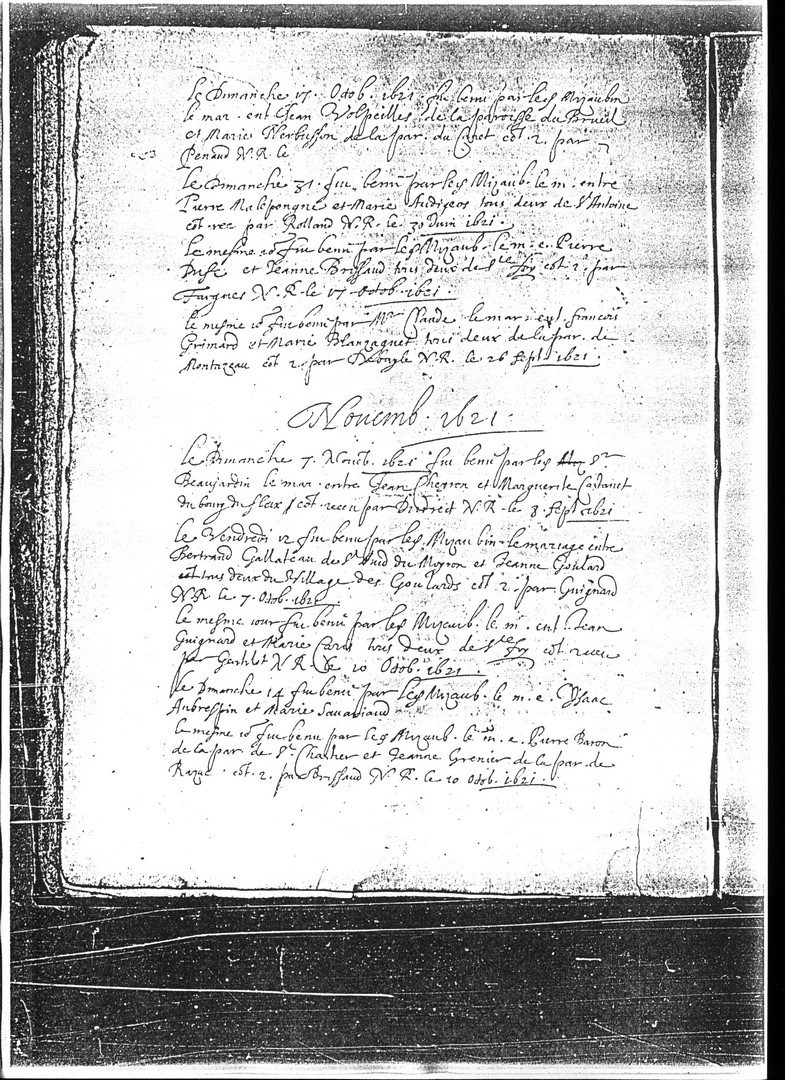 le Dimanche 17. Octob. 1621 fu beni par les Mizaubin
le mar. ent Jean Volpeilles de la paroisse du Brueil
et Marie de la par. du cot. 2. par
Penaud N.R. le
Le Dimanche 31. fu beni par les Mizaub. le m. entre
Pierre Malepongne et Marie Audigeos tous deux de St Antoine
cot. rec par Rolland N.R. le 30 Juin 1621.
le mesme io fu beni par les Mizaub. le m. e. Pierre
et Jeanne Brissaud tous deux de Ste foy cot 2. par
Fargues N.R. le 17 Octob. 1621.
le mesme io fu beni par Mr Claude le mar. ent. francois
Grimard et Marie Blanzaguet tous deux de la par. de
Montazeau cot 2. par Debayle N.R. le 26 Sept 1621.
Novemb. 1621.
le Dimanche 7. Noveb. 1621 fu beni par les Sr
Beaujardin le mar. entre Jean Cheyron et Marguerite Castanet
du bourg du fleix cot. receu par N.R. le 3 Sept 1621
le Vendredi 12 fu beni par les Mizaubin le mariage entre
Bertrand Gallateau de St du Moyron et Jeanne Goulard
tous deux du Village des Goulards cot 2. par Guignard
N.R. le 7. Octob. 1621
le mesme iour fu beni par les Mizaub. le m. ent. Jean
Guignard et Marie tous deux de Ste foy cot. receu
par Gentilot N.R. le 10 Octob. 1621.
le Dimanche 14 fu beni par les Mizaub. le m. e. Ysaac
Aubressin et Marie Savariaud
le mesme io fu beni par les Mizaub. le m. e. Pierre Baron
de la par. de St et Jeanne Grenier de la par. de
Razac. cot. 2. par Brissaud N.R. le 10 Octob. 1621.